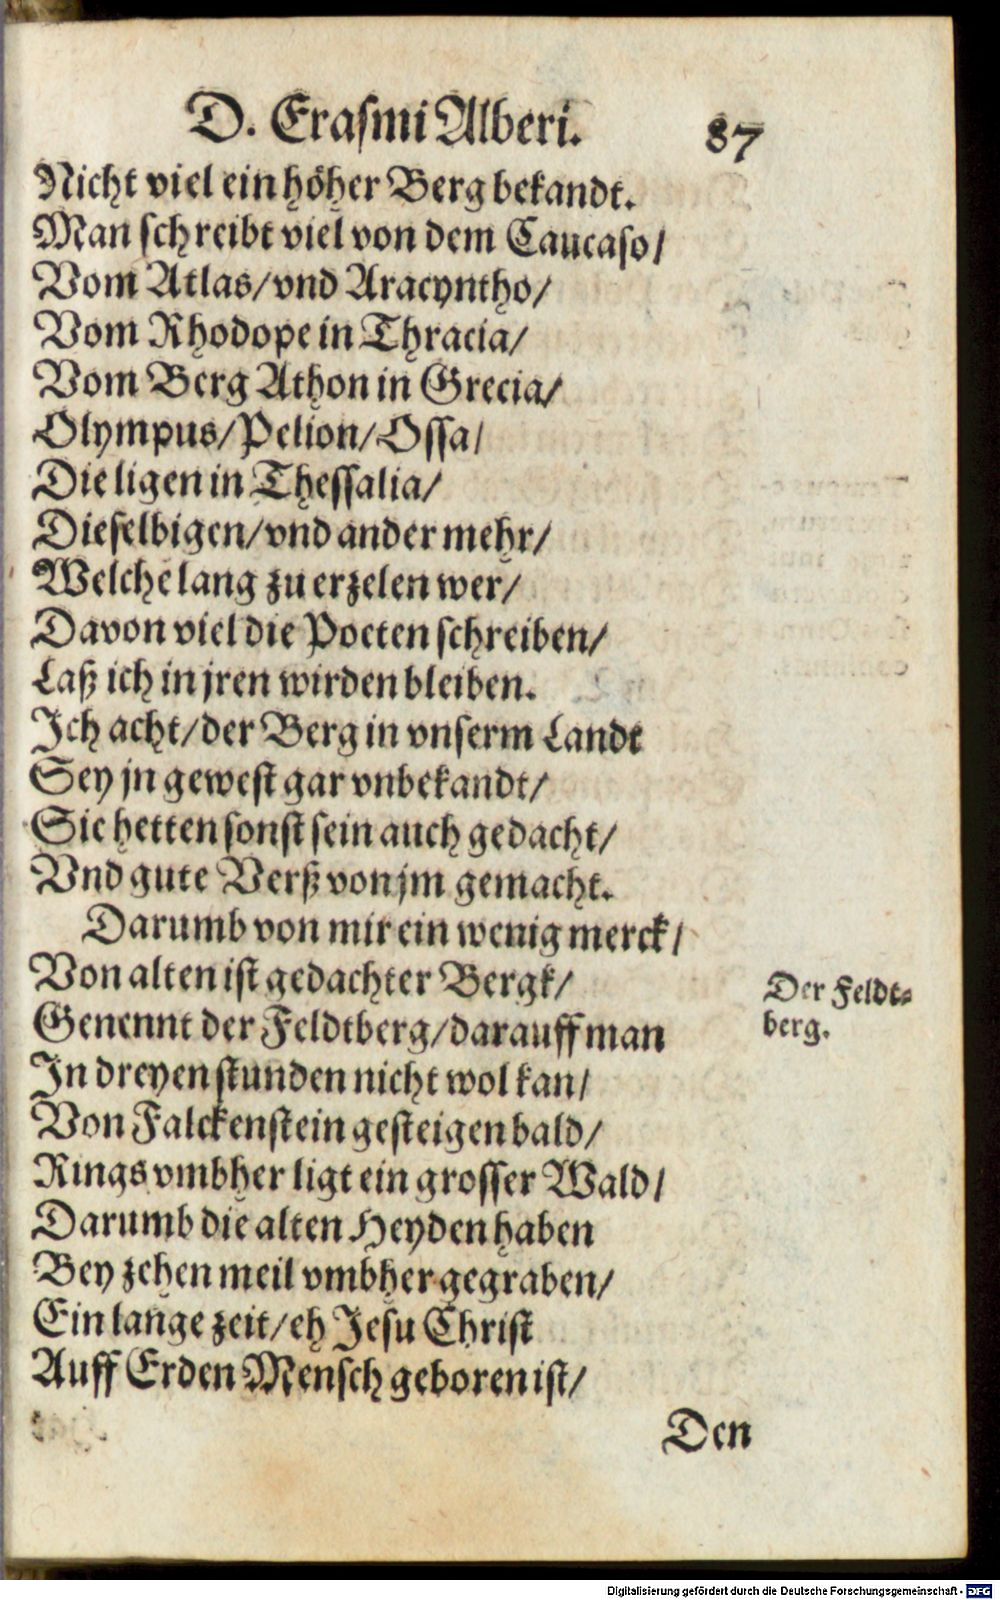 D. Erasmi Alberi. 87
Nicht viel ein höher Berg bekandt.
Man schreibt viel von dem Caucaso/
Vom Atlas/vnd Aracyntho/
Vom Rhodope in Thracia/
Vom Berg Athon in Grecia/
Olympus/Pelion/Ossa/
Die ligen in Thessalia/
Dieselbigen/vnd ander mehr/
Welche lang zu erzelen wer/
Davon viel die Poeten schreiben/
Laß ich in jren wirden bleiben.
Ich acht/der Berg in vnserm Landt
Sey jn gewest gar vnbekandt/
Sie hetten sonst sein auch gedacht/
Vnd gute Verß von jm gemacht.
Darumb von mir ein wenig merck/
Von alten ist gedachter Bergk/
Genennt der Feldtberg/darauff man
In dreyen stunden nicht wol kan/
Von Falckenstein gesteigen bald/
Rings vmbher ligt ein grosser Wald/
Darumb die alten Heyden haben
Bey zehen meil vmbher gegraben/
Ein lange zeit/eh Jesu Christ
Auff Erden Mensch geboren ist/
Den
Der Feldt-
berg.
Digitalisierung gefördert durch die Deutsche Forschungsgemeinschaft - DFG